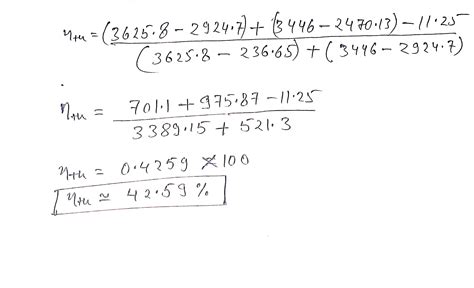 η_th = (3625.8 - 2924.7) + (3446 - 2470.13) - 11.25 / (3625.8 - 236.65) + (3446 - 2924.7)
η_th = 701.1 + 975.87 - 11.25 / 3389.15 + 521.3
η_th = 0.4259 × 100
η_th ≃ 42.59 %